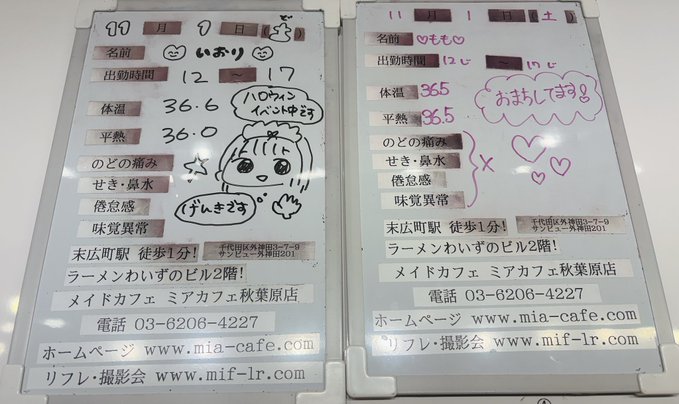 11 月 1 日 (土)
ど
名前 いおり
出勤時間 12 ～ 17
体温 36.6
ハロウィン
イベント中です
平熱 36.0
のどの痛み
せき・鼻水
倦怠感
げんきです
味覚異常
末広町駅 徒歩1分!
千代田区外神田3-7-9
サンビュー外神田201
ラーメンわいずのビル2階!
メイドカフェ ミアカフェ秋葉原店
電話 03-6206-4227
ホームページ www.mia-cafe.com
リフレ・撮影会 www.mif-lr.com
11 月 1 日 (土)
名前 ♡もも♡
出勤時間 12 ～ 17
体温 36.5
おまちしてます!
平熱 36.5
のどの痛み
せき・鼻水
×
倦怠感
味覚異常
末広町駅 徒歩1分!
千代田区外神田3-7-9
サンビュー外神田201
ラーメンわいずのビル2階!
メイドカフェ ミアカフェ秋葉原店
電話 03-6206-4227
ホームページ www.mia-cafe.com
リフレ・撮影会 www.mif-lr.com